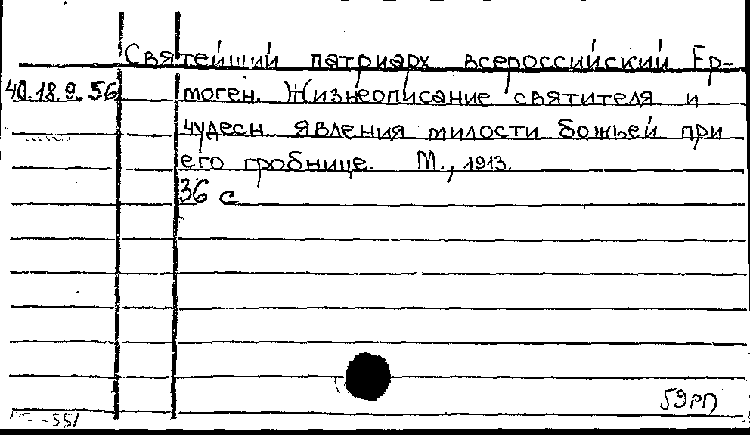 Святейший патриарх всероссийский Ер-
40.18.9.56 моген. Жизнеописание святителя и
чудесн. явления милости божьей при
его гробнице. М., 1913.
36 с
59РП